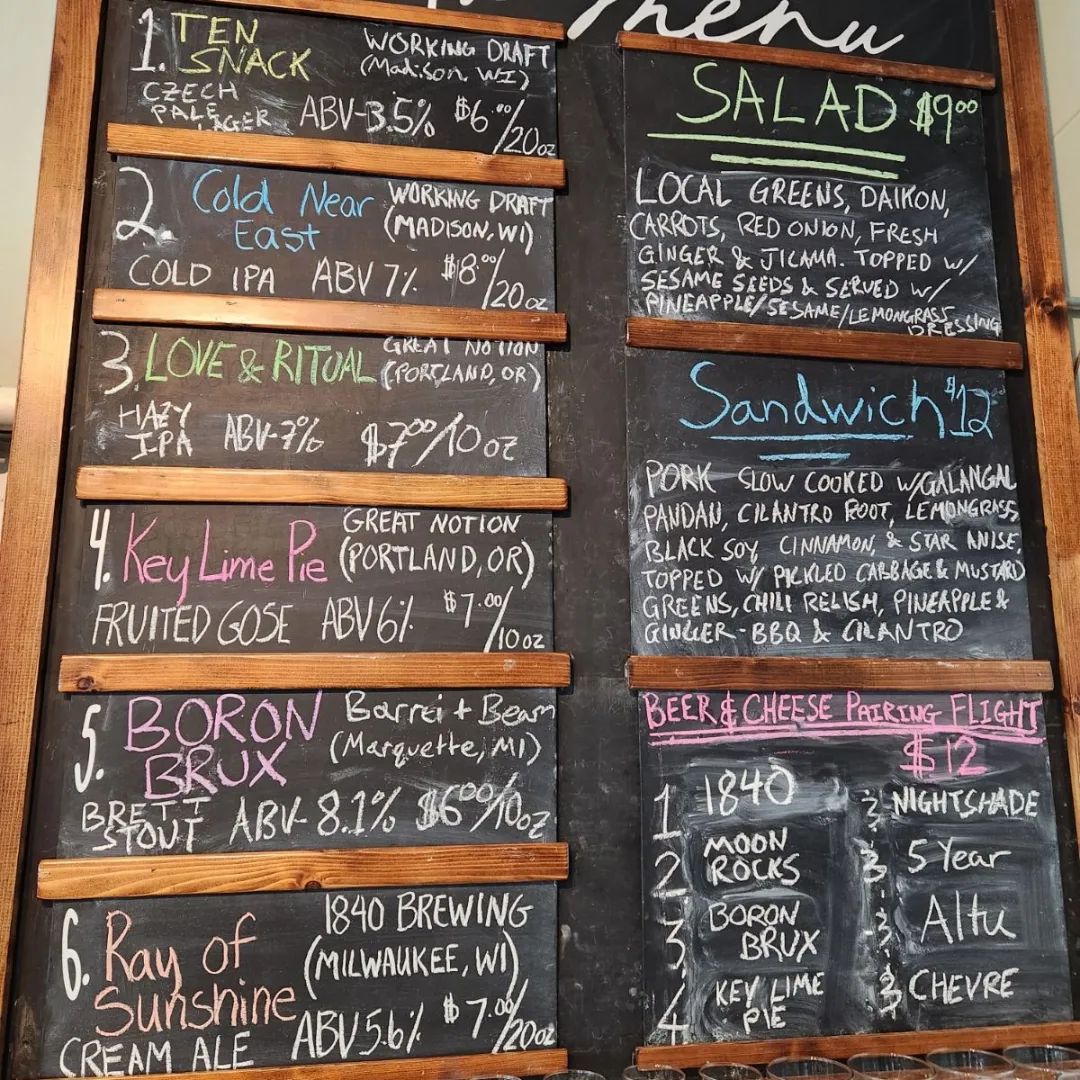 Menu
1. TEN SNACK
WORKING DRAFT
(Madison, WI)
CZECH
PALE
LAGER
ABV-3.5% $6.00/20oz
2. Cold Near
East
WORKING DRAFT
(MADISON, WI)
COLD IPA ABV 7% $8.00/20oz
3. LOVE & RITUAL
GREAT NOTION
(PORTLAND, OR)
HAZY
IPA
ABV-7% $7.00/10oz
4. Key Lime Pie
GREAT NOTION
(PORTLAND, OR)
FRUITED GOSE ABV 6% $7.00/10oz
5. BORON
BRUX
Barrel + Beam
(Marquette, MI)
BRETT
STOUT
ABV- 8.1% $6.00/10oz
6. Ray of
Sunshine
1840 BREWING
(MILWAUKEE, WI)
CREAM ALE ABV 5.6% $7.00/20oz
SALAD $9.00
LOCAL GREENS, DAIKON,
CARROTS, RED ONION, FRESH
GINGER & JICAMA. TOPPED W/
SESAME SEEDS & SERVED W/
PINEAPPLE/SESAME/LEMONGRASS
DRESSING
Sandwich $12
PORK SLOW COOKED W/GALANGAL
PANDAN, CILANTRO ROOT, LEMONGRASS,
BLACK SOY, CINNAMON, & STAR ANISE.
TOPPED W/ PICKLED CABBAGE & MUSTARD
GREENS, CHILI RELISH, PINEAPPLE &
GINGER-BBQ & CILANTRO
BEER & CHEESE PAIRING FLIGHT
$12
1 1840 & NIGHTSHADE
2 MOON
ROCKS & 5 Year
3 BORON
BRUX & Altu
4 KEY LIME
PIE & CHEVRE